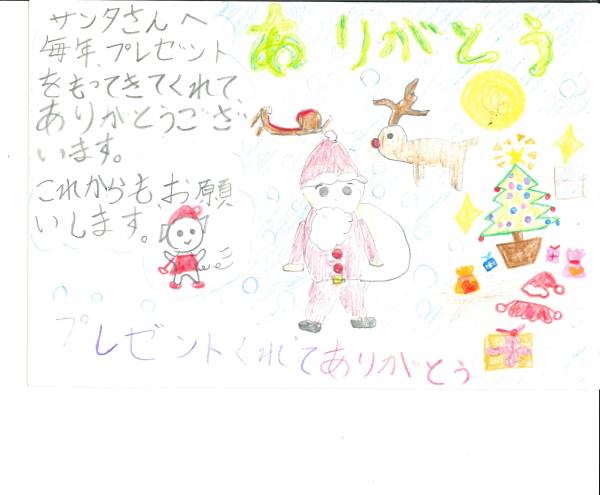 サンタさんへ
毎年、プレゼント
をもってきてくれて
ありがとうござ
います。
これからもお願
いします。
ありがとう
プレゼントくれてありがとう